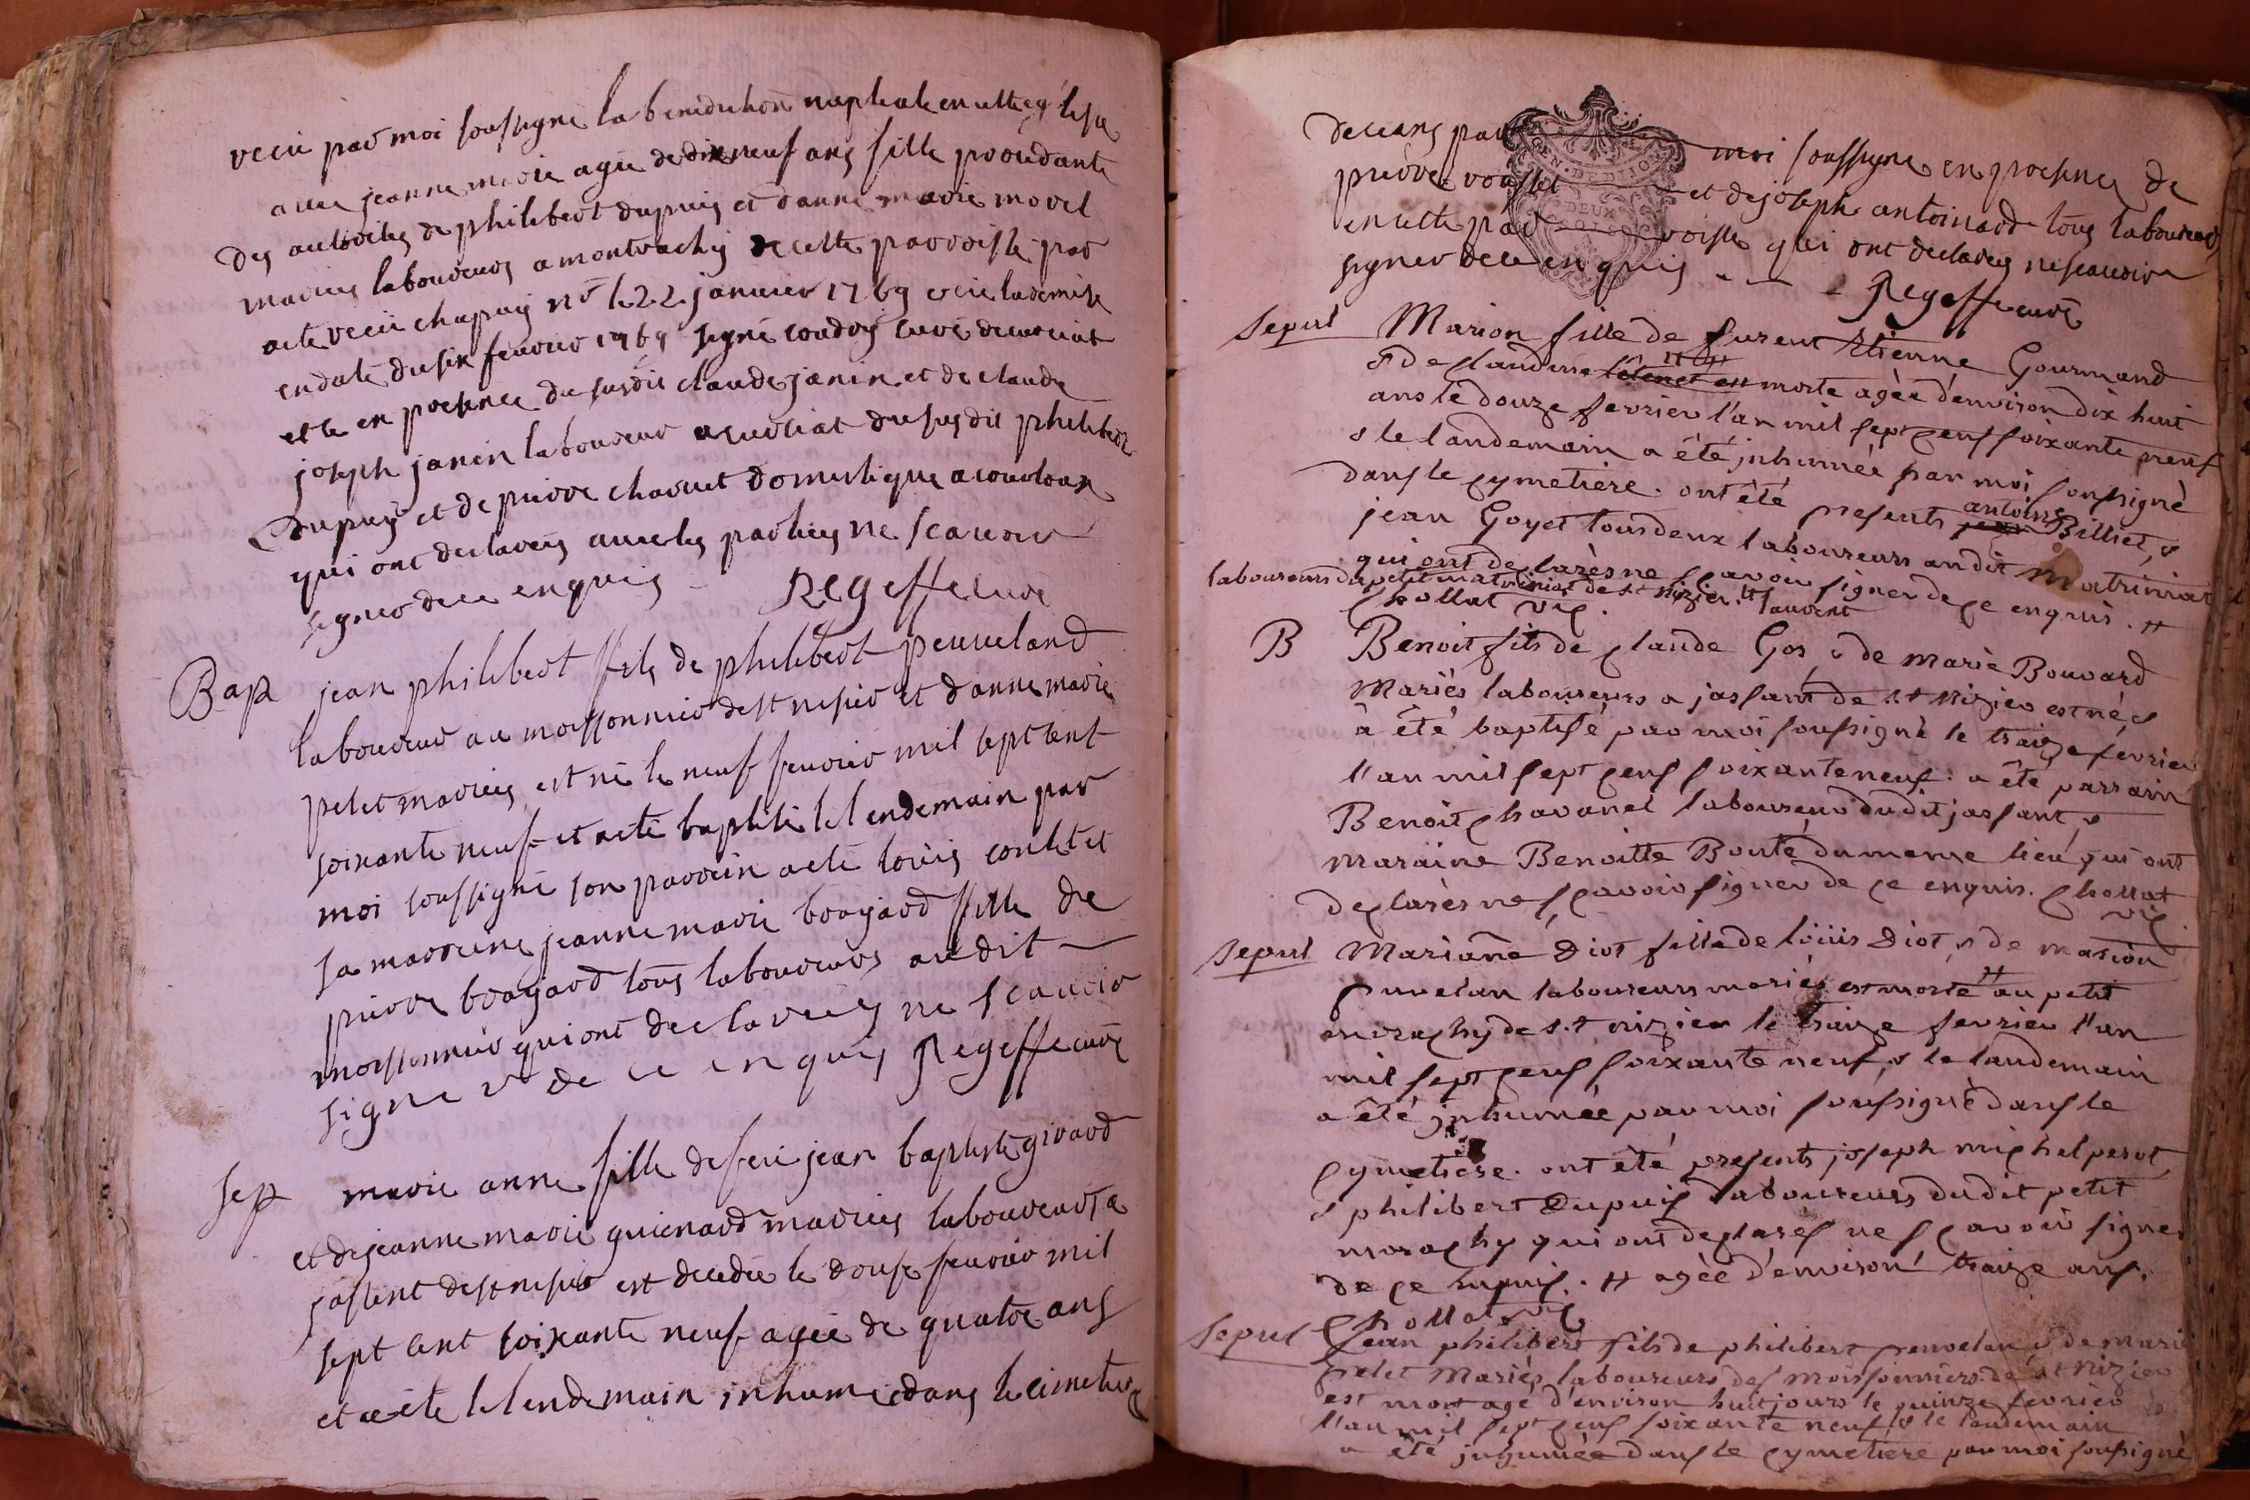 receü par moi soussigné la benediction nuptiale en cette eglise
avec jeanne marie agée de dix neuf ans fille procedante
des authorités de philibert dupuis et d'anne marie morel
mariés laboureurs a montrachy de cette parroisse par
acte receü chapuis nre le 22 janvier 1769 veüe la remise
en datte du six fevrier 1769 signé coudry curé de curciat
et ce en presence du susdit claude janin et de claude
joseph janin laboureur a curciat du susdit philibert
dupuis et de pierre charvet domestique a courtoux
qui ont declarés avec les parties ne scavoir
signer de ce enquis Regeffe curé
Bap jean philibert fils de philibert peuveland
laboureur au moissonnier de st nisier et d'anne marie
pelet mariés est né le neuf fevrier mil sept cent
soixante neuf et a eté baptisé le lendemain par
moi soussigné son parrain a eté loüis contet et
sa marreine jeanne marie broyard fille de
pierre broyard tous laboureurs audit
moissonnier qui ont declarés ne scavoir
signer de ce enquis Regeffe curé
Sep marie anne fille de feü jean baptiste givard
et de jeanne marie guienard mariés laboureurs a
jassent de st nisier est decedée le douse fevrier mil
sept cent soixante neuf agée de quatre ans
et a eté le lendemain inhumée dans le cimetiere
de ceans par moi soussigné en presence de
pierre vousset et de joseph antoinard tous laboureurs
en cette parroisse qui ont declarés ne scavoir
signer de ce enquis Regeffe curé
GEN. DE DIJON
DEUX
Sepul Marion fille de furent Etienne Gourmand
& de claudine morte agée d'environ dix huit
ans le douze fevrier l'an mil sept cens soixante neuf
& le landemain a été inhumée par moi soussigné
dans le cymetiere. ont été presents antoine Billiet, &
jean Goyet tous deux laboureurs au dit matriniat
qui ont declarés ne scavoir signer de ce enquis. #
laboureurs du petit matriniat de st nizier
Chollat vic.
B Benoit fils de claude Gos & de marie Bouvard
Mariés laboureurs a jassant de st Nizier est né &
à été baptisé par moi soussigné le traize fevrier
l'an mil sept cens soixante neuf: a été parrain
Benoit chavanel laboureur du dit jassant, &
maraine Benoitte Bonté du meme lieu qui ont
declarés ne scavoir signer de ce enquis. Chollat
vic
Sepul Mariane Diot fille de loüis Diot, & de marion
Puvelan laboureurs mariés est morte # au petit
morachy de st nizier le traize fevrier l'an
mil sept cens soixante neuf, & le landemain
a été inhumée par moi soussigné dans le
cymetiere. ont été presents joseph michel perot,
& philibert Dupuis laboureurs du dit petit
morachy qui ont declarés ne scavoir signer
de ce enquis. # agée d'environ traize ans.
Chollat vic
Sepul Jean philibert fils de philibert peuvelan & de marie
Pelet Mariés laboureurs des moissonniers de st Nizier
est mort agé d'environ huit jours le quinze fevrier
l'an mil sept cens soixante neuf & le landemain
a été inhumée dans le cymetiere par moi soussigné